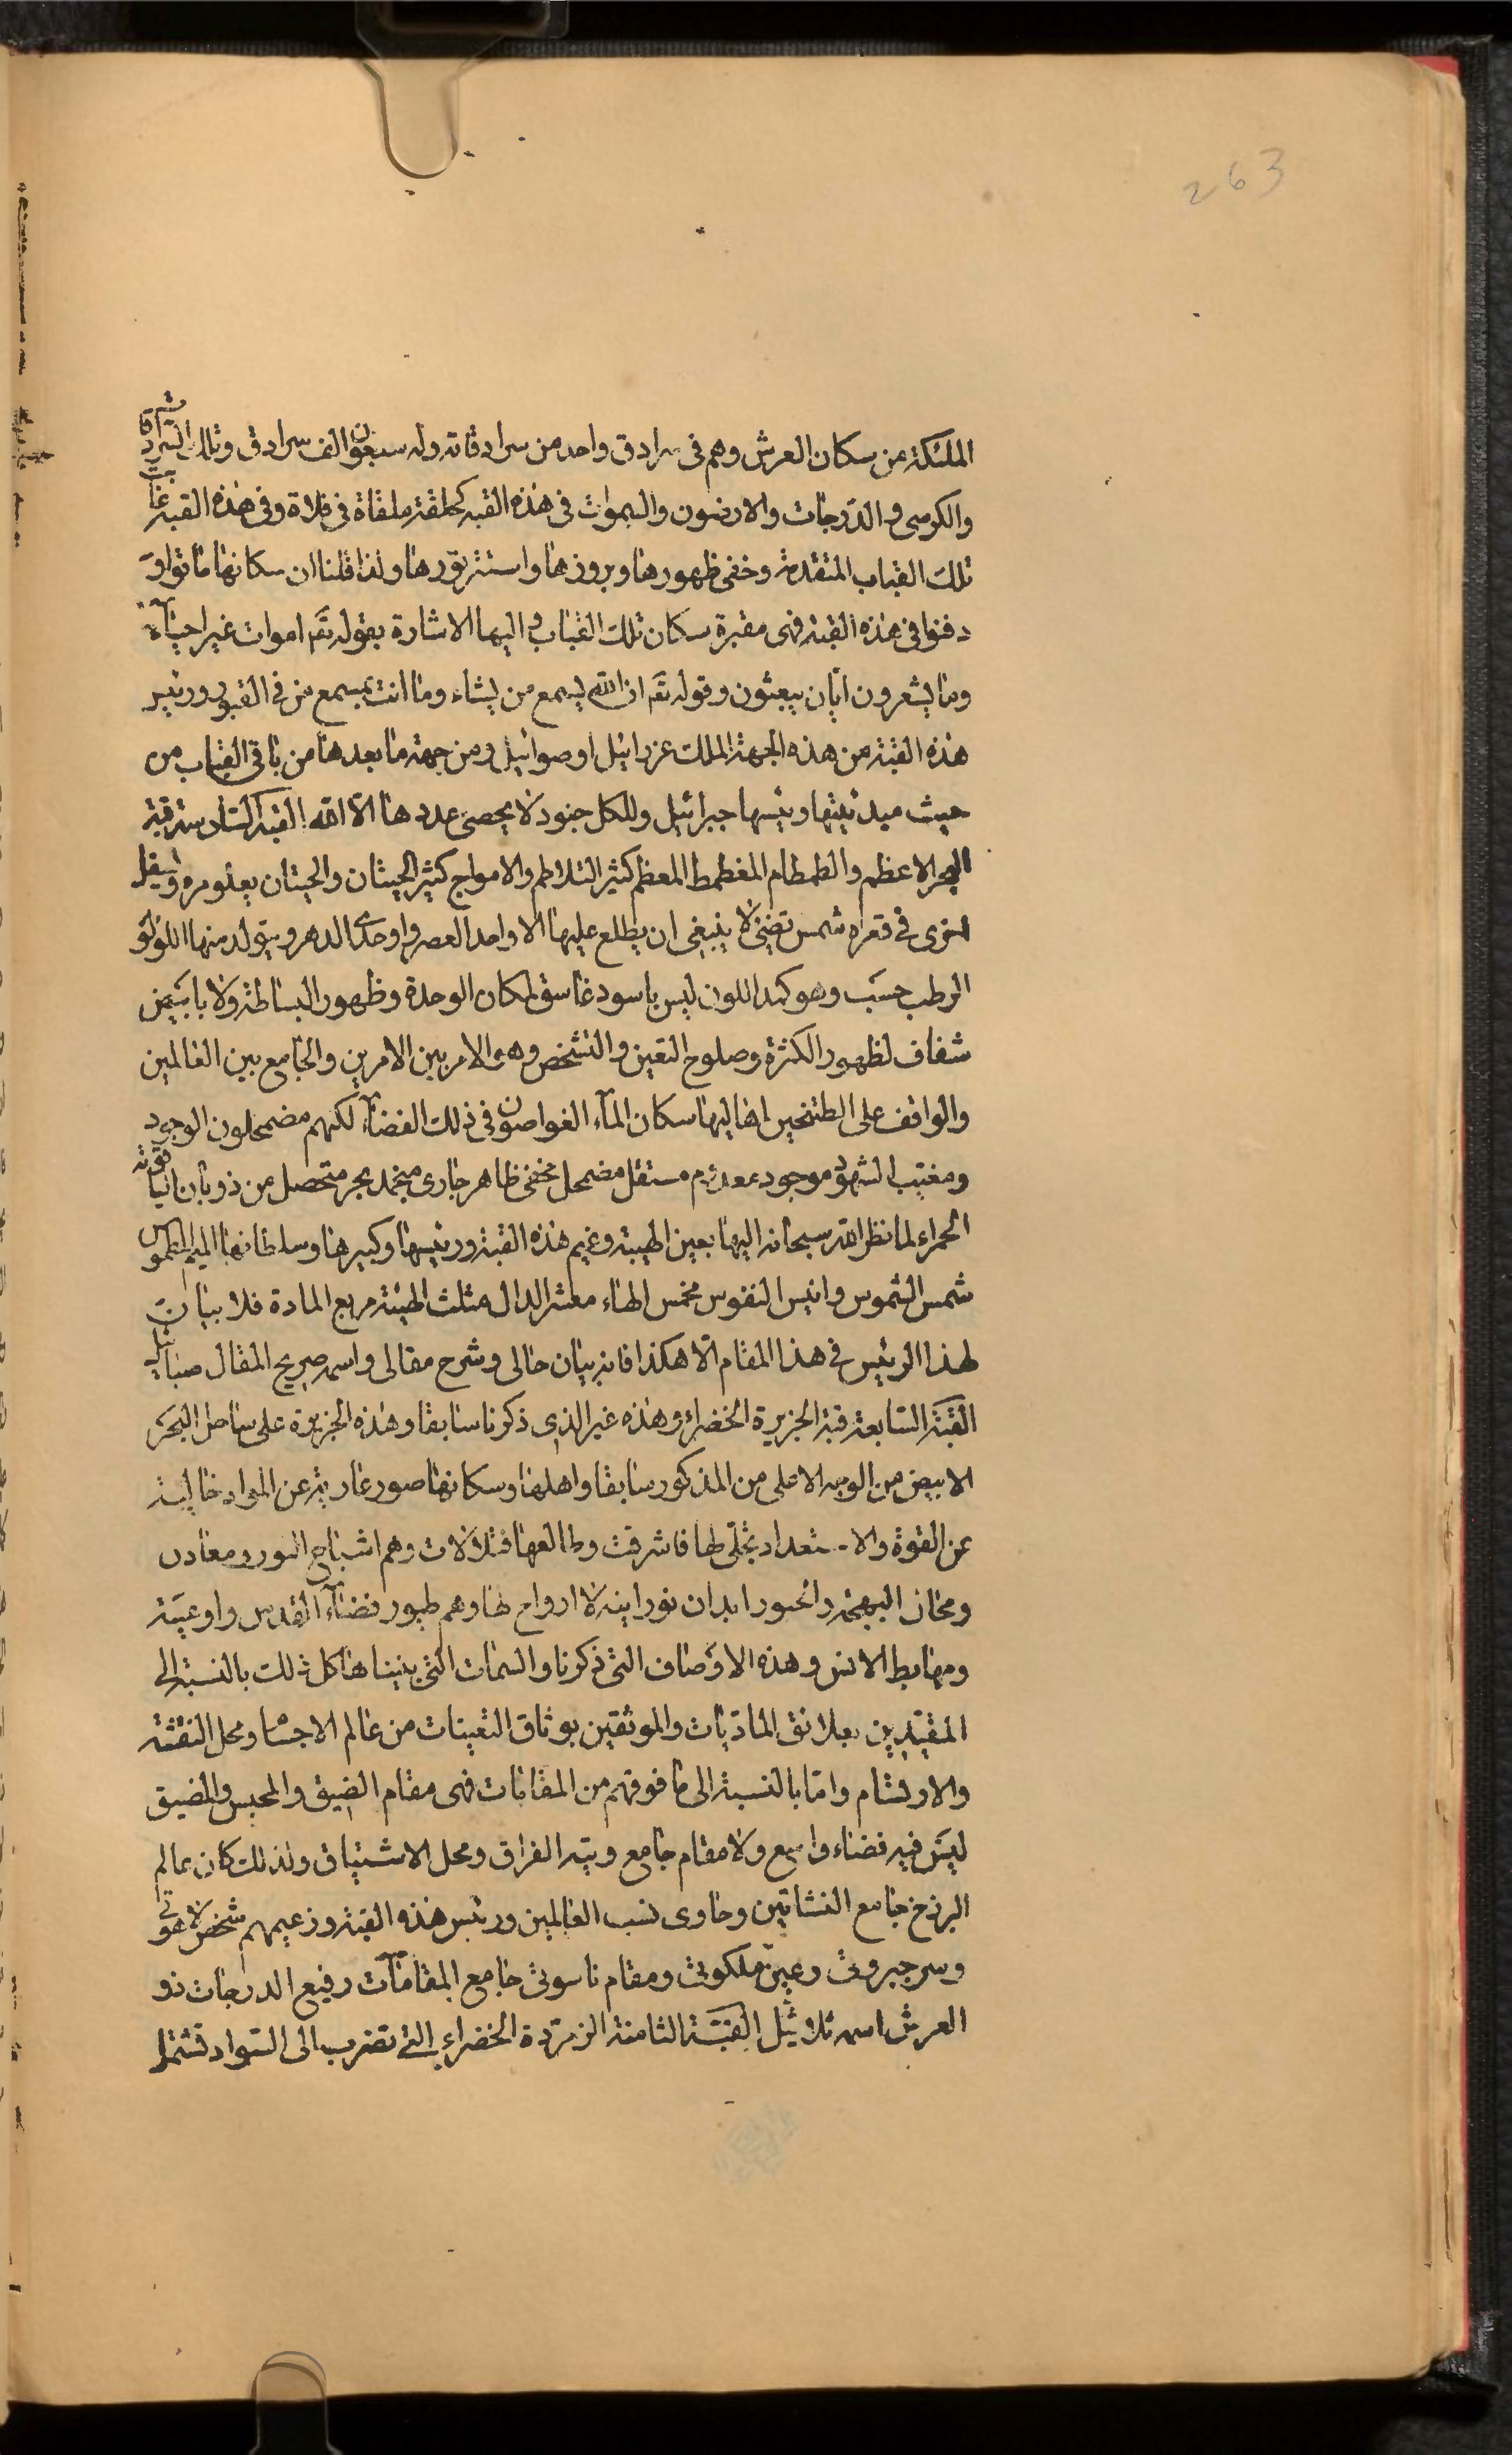 263
الملئكة من سكان العرش وهم فى سرادق واحد من سرادقاته وله سبعون الف سرادق وتلك السرادقات
والكرسى والدرجات والارضون والسموات فى هذه القبه كحلقة ملقاة فى فلاة وفى هذه القبه غابت
تلك القباب المتقدمة وخفى ظهورها وبروزها واستتر نورها ولذا قلنا ان سكانها ماتوا و
دفنوا فى هذه القبة فهى مقبرة سكان تلك القباب و اليها الاشارة بقوله تع اموات غير احيآء
وما يشعرون ايّان يبعثون وقوله تع ان الله يسمع من يشاء وما انت بمسمع من فى القبور ورئيس
هذه القبة من هذه الجهة الملك عزرائيل او صوائيل ومن جهة ما بعدها من باقى القباب من
حيث ميدئيتها رئيسها جبرائيل وللكل جنود لا يحصى عددها الّا الله القبة السادسة قبة
البحر الاعظم والطمطام المغطمط المعظم كثير التلاطم والامواج كثير الحيتان والحيتان يعلو مرة ويسفل
اخرى فى قعره شمس تضئ لا ينبغى ان يطلع عليها الا واحد العصر و اوحدى الدهر ويتولد منها اللؤلؤ
الرطب حسَب وهو كمد اللون ليس باسود غاسق لمكان الوحدة وظهور البساطة ولا بابيض
شفاف لظهور الكثرة وصلوح التعين والتشخص وهى الامر بين الامرين والجامع بين العالمين
والواقف على الطتنجين اهاليها سكان المآء الغواصون فى ذلك الفضآء لكنهم مضمحلون الوجود
ومغيب الشهود موجود معدوم مستقل مضمحل مخفى ظاهر جارى منجمد بحر متحصل من ذوبان الياقوتة
الحمراء لما نظر الله سبحانه اليها بعين الهيبة وغيم هذه القبة ورئيسها وكبيرها وسلطانها الميم المطموس
شمس الشموس وانيس النفوس مخمس الهاء معشر الدال مثلث الهيئة مربع المادة فلا بيان
لهذا الرئيس فى هذا المقام الّا هكذا فانه بيان حالى وشرح مقالى واسمه صريح المقال صبائيل
القبّة السّابعة قبة الجزيرة الخضراء وهذه غير الذى ذكرنا سابقا وهذه الجزيرة على ساحل البحر
الابيض من الوجه الاعلى من المذكور سابقا واهلها وسكانها صور عارية عن المواد خالية
عن القوة والاستعداد تجلّى لها فاشرقت وطالعها فتلألأت وهم اشباح النور ومعادن
ومخازن البهجة والحبور ابدان نورانية لا ارواح لها وهم طيور فضآء القدس واوعية
ومهابط الانس وهذه الاوصاف التى ذكرنا والسمات التى بيّناها كل ذلك بالنسبة الى
المقيّدين بعلائق الماديّات والموثقين بوثاق التعينات من عالم الاجسام ومحل النقش
والارتسام وامّا بالنسبة الى ما فوقهم من المقامات فهى مقام الضيق والمحبس والمضيق
ليس فيه فضاء واسع ولا مقام جامع وتيه الفراق ومحل الاشتياق ولذلك كان عالم
البرزخ جامع النشاتين وحاوى نسب العالمين ورئيس هذه القبة وزعيمهم شخص لاهوتى
وسر جبروتى وعين ملكوتى ومقام ناسوتى جامع المقامات رفيع الدرجات ذو
العرش اسمه ثلاثيل القبّة الثامنة الزمرّدة الخضراء التى تضرب الى السواد تشتمل